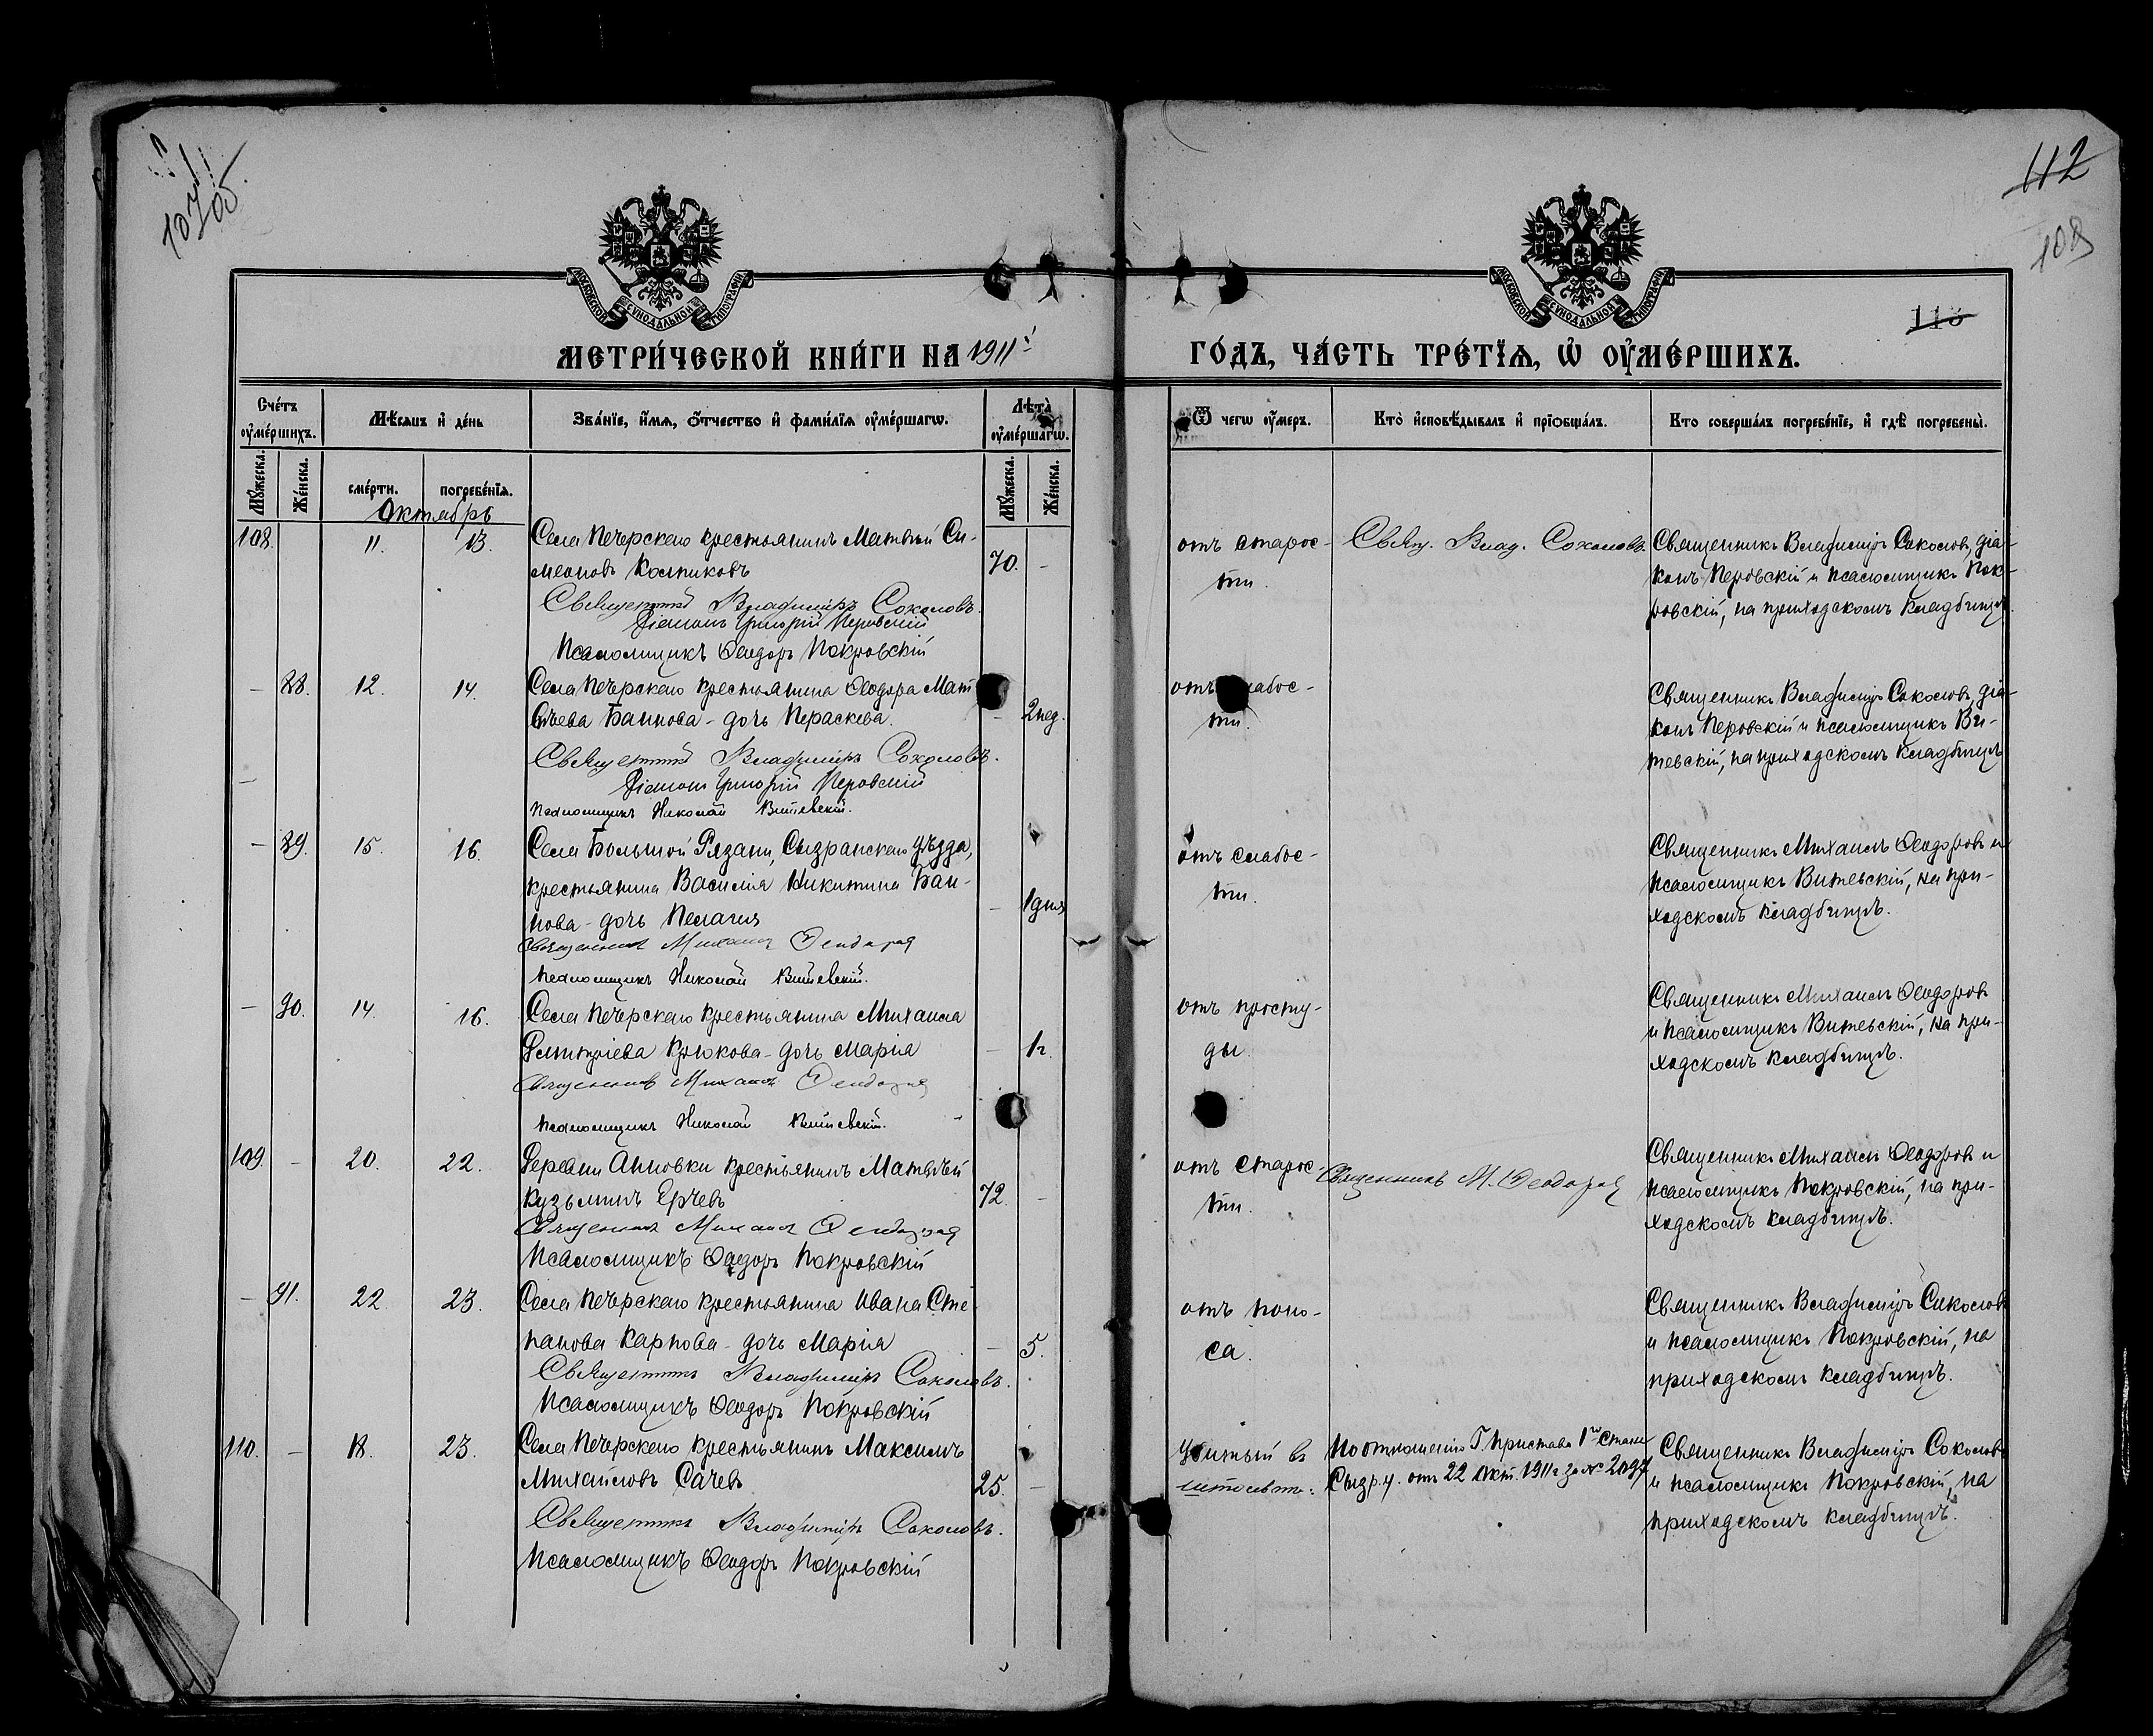 112
108
113
МОСКОВСКОЙ СѴНОДАЛЬНОЙ ТИПОГРАФІИ
МОСКОВСКОЙ СѴНОДАЛЬНОЙ ТИПОГРАФІИ
МЕТРИ́ЧЕСКОЙ КНИ́ГИ НА 1911й
ГО́ДЪ, ЧА́СТЬ ТРЕ́ТІѦ, Ѡ҆ ОУ҆МЕ́РШИХЪ.
Сче́тъ оу҆ме́ршихъ.
Мѣ́сяцъ и҆ де́нь
Зва́нїе, и҆́мѧ, ѻ҆́тчество и҆ фами́лїѧ оу҆ме́ршагѡ.
Лѣта̀ оу҆ме́ршагѡ.
Ѿ чегѡ̀ оу҆́меръ.
Кто̀ и҆сповѣ́дывалъ и҆ прїѡбща́лъ.
Кто соверша́лъ погребе́нїе, и҆ гдѣ̀ погребены̀.
Мꙋ́жеска.
Же́нска.
сме́рти.
погребе́нїѧ.
Мꙋ́жеска.
Же́нска.
Октябрь
108. 11. 13. Села Печерскаго крестьянинъ Матвѣй Си-
меоновъ Колпиковъ 70. -
Священникъ Владиміръ Соколовъ.
Діаконъ Григорій Перовскій
Псаломщикъ Ѳеодоръ Покровскій
отъ старос-
ти.
Свящ. Влад. Соколовъ.
Священникъ Владиміръ Соколовъ, діа-
конъ Перовскій и псаломщикъ Пок-
ровскій, на приходскомъ кладбищѣ.
- 88. 12. 14. Села Печерскаго крестьянина Ѳеодора Мат
вѣева Баннова - дочь Параскева. - 2 нед.
Священникъ Владиміръ Соколовъ.
Діаконъ Григорій Перовскій
Псаломщикъ Николай Витевскій.
отъ слабос-
ти.
Священникъ Владиміръ Соколовъ, діа-
конъ Перовскій и псаломщикъ Ви-
тевскій, на приходскомъ кладбищѣ
- 89. 15. 16. Села Большой Рязани, Сызранскаго уѣзда,
крестьянина Василія Никитина Бан-
нова - дочь Пелагія - 1 дня
Священникъ Михаилъ Ѳеодоровъ
Псаломщикъ Николай Витевскій.
отъ слабос-
ти.
Священникъ Михаилъ Ѳеодоровъ и
псаломщикъ Витевскій, на при-
ходскомъ кладбищѣ.
- 90. 14. 16. Села Печерскаго крестьянина Михаила
Димитріева Крюкова - дочь Марія - 1 г.
Священникъ Михаилъ Ѳеодоровъ
Псаломщикъ Николай Витевскій.
отъ просту-
ды.
Священникъ Михаилъ Ѳеодоровъ
и псаломщикъ Витевскій, на при-
ходскомъ кладбищѣ.
109. - 20. 22. Деревни Анновки крестьянинъ Матвѣй
Кузьминъ Ерчевъ 72. -
Священникъ Михаилъ Ѳеодоровъ
Псаломщикъ Ѳеодоръ Покровскій
отъ старос-
ти.
Священникъ М. Ѳеодоровъ
Священникъ Михаилъ Ѳеодоровъ и
псаломщикъ Покровскій, на при-
ходскомъ кладбищѣ.
- 91. 22. 23. Села Печерскаго крестьянина Ивана Сте
панова Карпова - дочь Марія - 5.
Священникъ Владиміръ Соколовъ.
Псаломщикъ Ѳеодоръ Покровскій
отъ поно-
са.
Священникъ Владиміръ Соколовъ
и псаломщикъ Покровскій, на
приходскомъ кладбищѣ.
110. - 18. 23. Села Печерскаго крестьянинъ Максимъ
Михайловъ Сачевъ 25. -
Священникъ Владиміръ Соколовъ.
Псаломщикъ Ѳеодоръ Покровскій
Убитый въ
По отношенію Г. Пристава 1го Стана
Сызр. у. отъ 22 Окт. 1911 г. за № 2097
Священникъ Владиміръ Соколовъ
и псаломщикъ Покровскій, на
приходскомъ кладбищѣ.